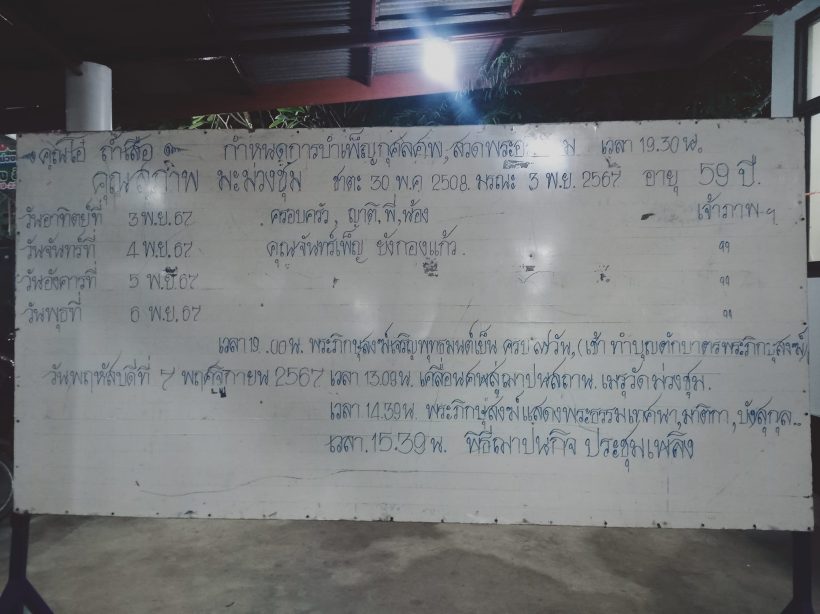 คุณโอ๋ ถ้ำเสือ กำหนดการบำเพ็ญกุศลศพ, สวดพระอ ม เวลา 19.30 น.
คุณสุภาพ มะม่วงชุ่ม ชาตะ 30 พ.ค. 2508. มรณะ 3 พ.ย. 2567 อายุ 59 ปี.
วันอาทิตย์ที่ 3 พ.ย. 67 ครอบครัว, ญาติ, พี่, น้อง เจ้าภาพฯ
วันจันทร์ที่ 4 พ.ย. 67 คุณจันทร์เพ็ญ ยังกองแก้ว. ''
วันอังคารที่ 5 พ.ย. 67 ''
วันพุธที่ 6 พ.ย. 67 ''
เวลา 19 .00 น. พระภิกษุสงฆ์เจริญพุทธมนต์เย็น ครบ ๗ วัน, (เช้า ทำบุญตักบาตรพระภิกษุสงฆ์)
วันพฤหัสบดีที่ 7 พฤศจิกายน 2567 เวลา 13.09 น. เคลื่อนศพสู่ฌาปนสถาน. เมรุวัดม่วงชุม.
เวลา 14.39 น. พระภิกษุสงฆ์แสดงพระธรรมเทศนา, มาติกา, บังสุกุล..
เวลา. 15.39 น. พิธีฌาปนกิจ ประชุมเพลิง